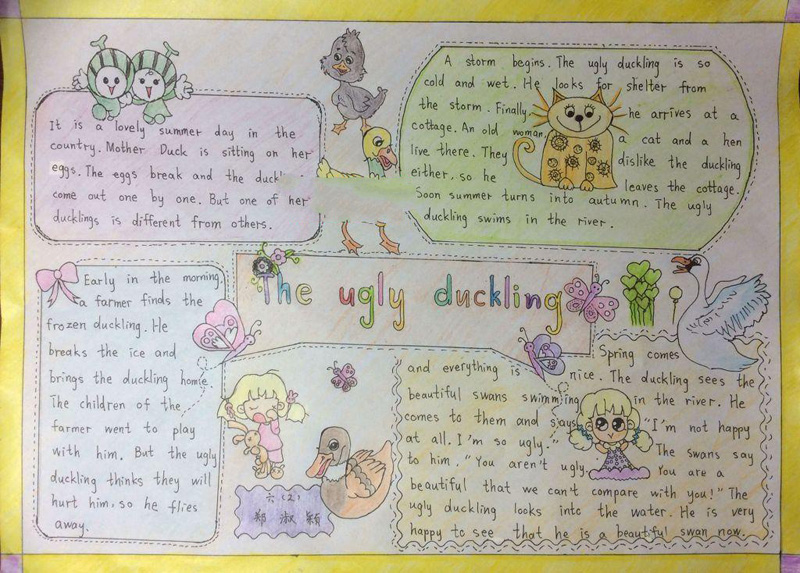 The ugly duckling
It is a lovely summer day in the
country. Mother Duck is sitting on her
eggs. The eggs break and the
come out one by one. But one of her
ducklings is different from others.
A storm begins. The ugly duckling is so
cold and wet. He looks for shelter from
the storm. Finally, he arrives at a
cottage. An old woman, a cat and a hen
live there. They dislike the duckling
either, so he leaves the cottage.
Soon summer turns into autumn. The ugly
duckling swims in the river.
Early in the morning,
a farmer finds the
frozen duckling. He
breaks the ice and
brings the duckling home.
The children of the
farmer went to play
with him. But the ugly
duckling thinks they will
hurt him, so he flies
away.
Spring comes
and everything is nice. The duckling sees the
beautiful swans swimming in the river. He
comes to them and says "I'm not happy
at all. I'm so ugly." The swans say
to him. "You aren't ugly. You are a
beautiful that we can't compare with you!" The
ugly duckling looks into the water. He is very
happy to see that he is a beautiful swan now.
六(2)
郑淑颖